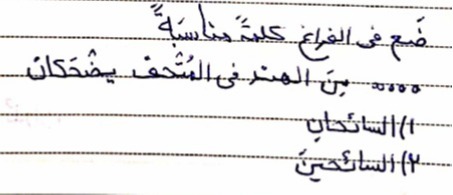 ضَع فى الفراغ كلمةً مناسبَةً
.... مِنَ الهند فى المُتْحَف يضْحَكان
١) السائحانِ
٢) السائحَينِ